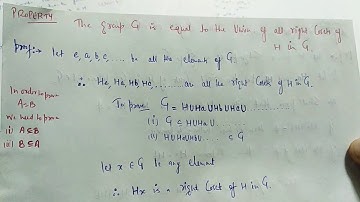 PROPERTY
The group G is equal to the Union of all right Coset of
H in G.
proof:- let e, a, b, c, ..... be all the element of G.
∴ He, Ha, Hb, Hc, ....... are all the right Coset of H in G.
In order to prove
A=B
we need to prove
i) A⊆B
ii) B⊆A
To prove G = HUHaUHbUHcU.......
(i) G ⊆ HUHaU......
(ii) HUHaUHbU...... ⊆ G
let x ∈ G be any element
∴ Hx is a right Coset of H in G.